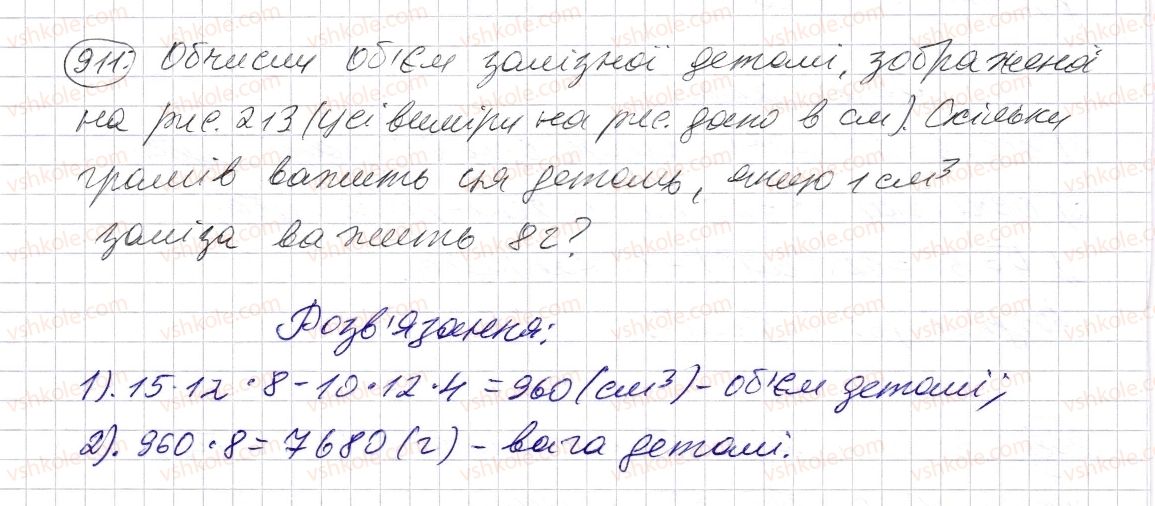 911. Обчисли об'єм залізної деталі, зображеної
на рис. 213 (усі виміри на рис. дано в см). Скільки
грамів важить ця деталь, якщо 1 см³
заліза важить 8 г?
Розв'язання:
1). 15 · 12 · 8 - 10 · 12 · 4 = 960 (см³) - об'єм деталі;
2). 960 · 8 = 7680 (г) - вага деталі.